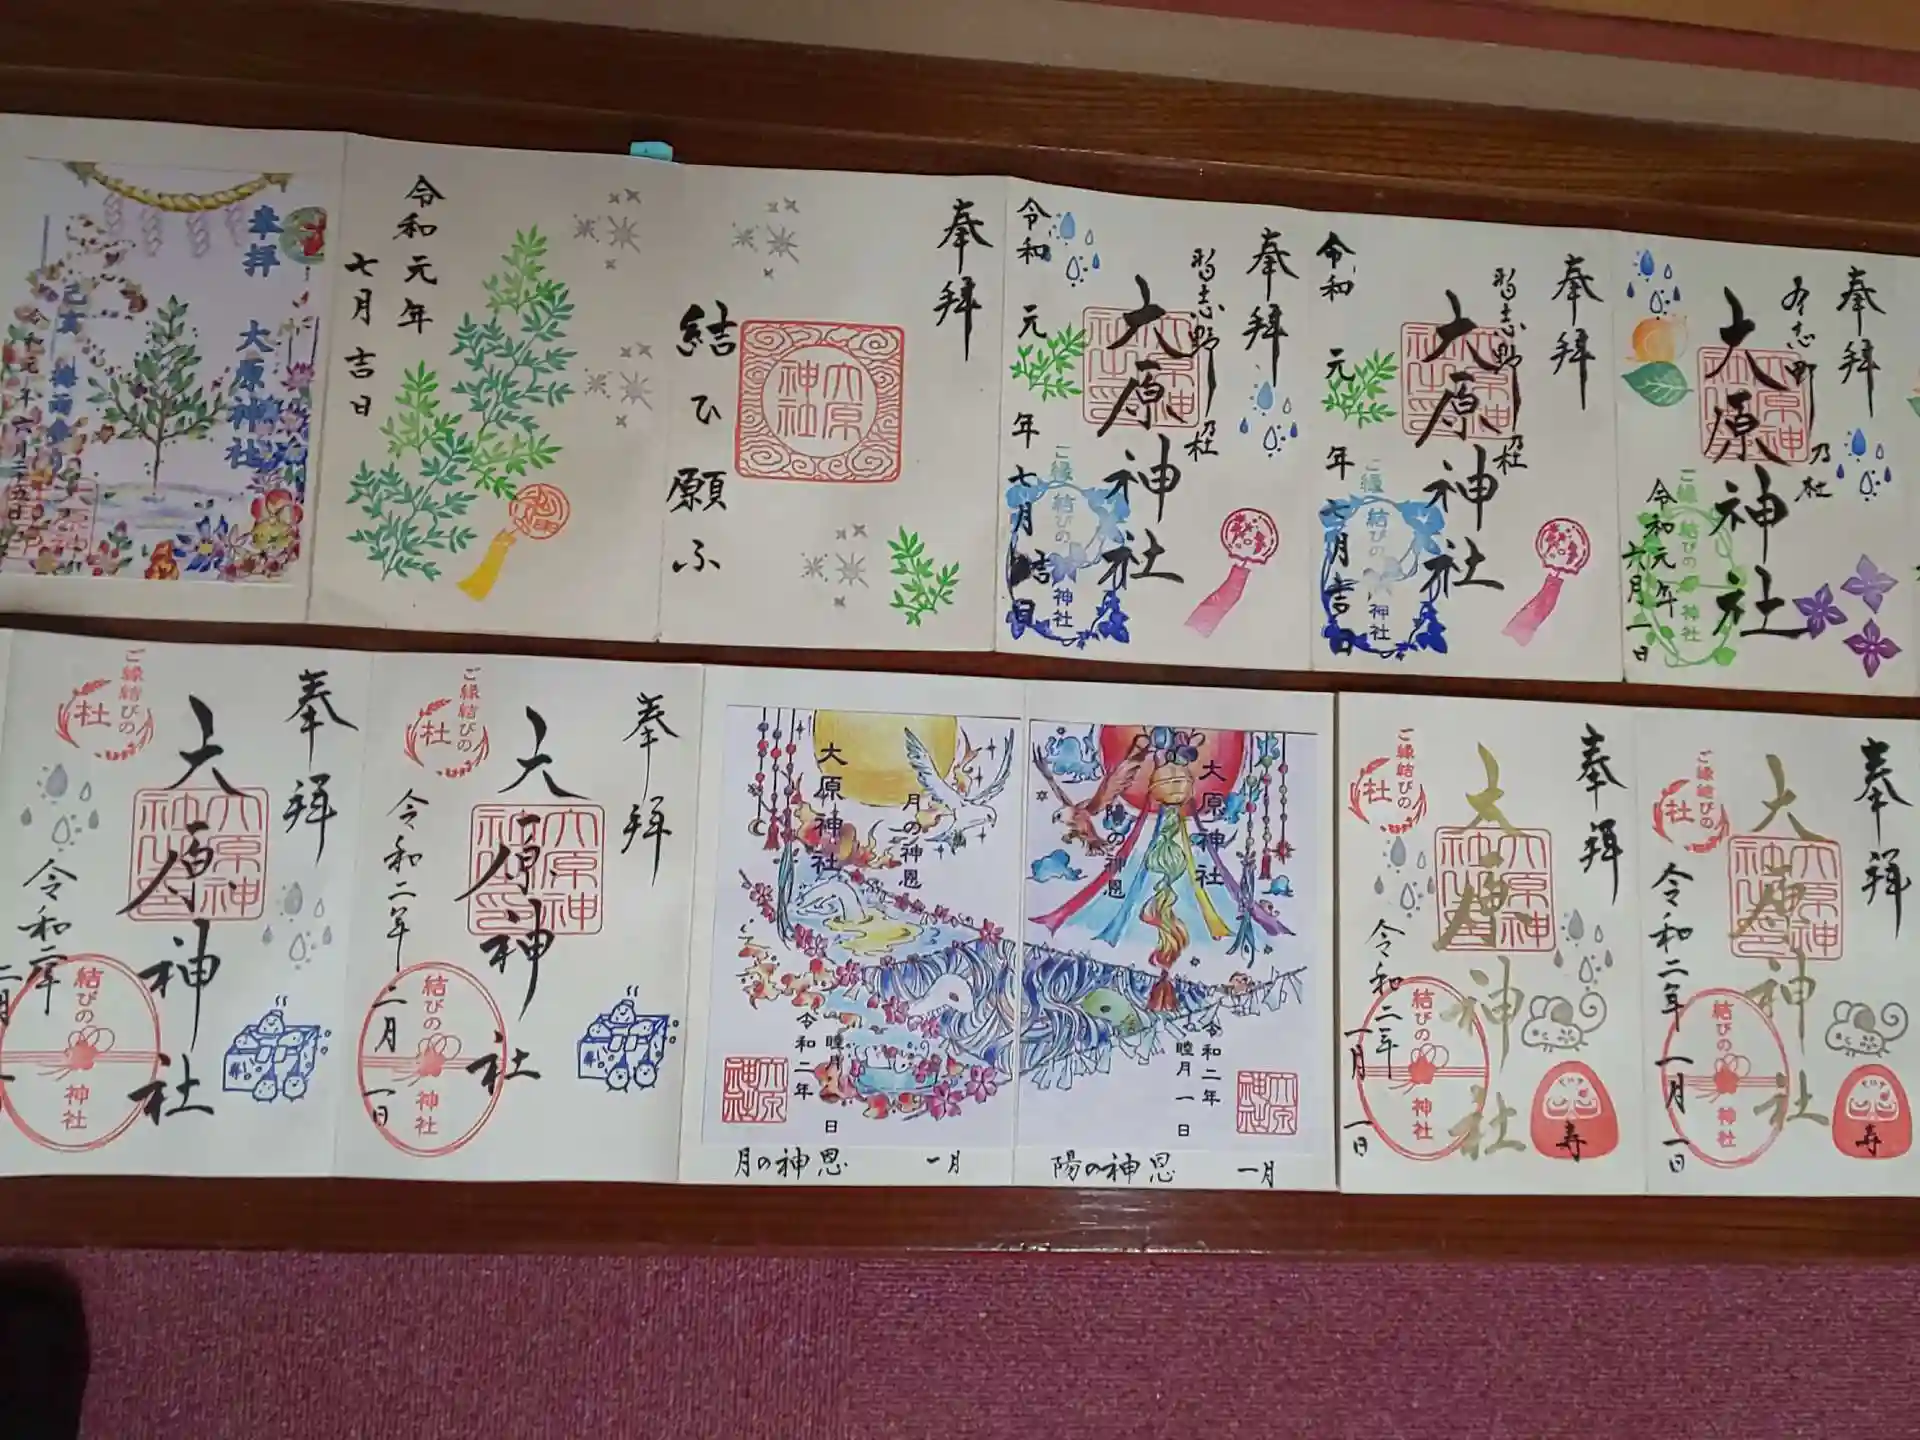 奉拝
大原神社
己亥
令和元年六月二十五日
令和元年
七月吉日
奉拝
大原神社
結ひ願ふ
奉拝
習志野乃杜
大原神社
令和元年七月吉日
ご縁結びの神社
奉拝
習志野乃杜
大原神社
令和元年七月吉日
ご縁結びの神社
奉拝
乃社
大原神社
令和元年
六月一日
ご縁結びの神社
奉拝
大原神社
大原神社之印
ご縁結びの
杜
令和二年
二月
結びの神社
奉拝
大原神社
大原神社之印
ご縁結びの
杜
令和二年
二月一日
結びの神社
大原神社
月の神恩
令和二年
睦月一日
大原神社
月の神恩 一月
大原神社
陽の神恩
令和二年
睦月一日
大原神社
陽の神恩 一月
奉拝
大原神社
大原神社之印
ご縁結びの
杜
令和二年
一月一日
結びの神社
寿
奉拝
大原神社
大原神社之印
ご縁結びの
杜
令和二年
一月一日
結びの神社
寿